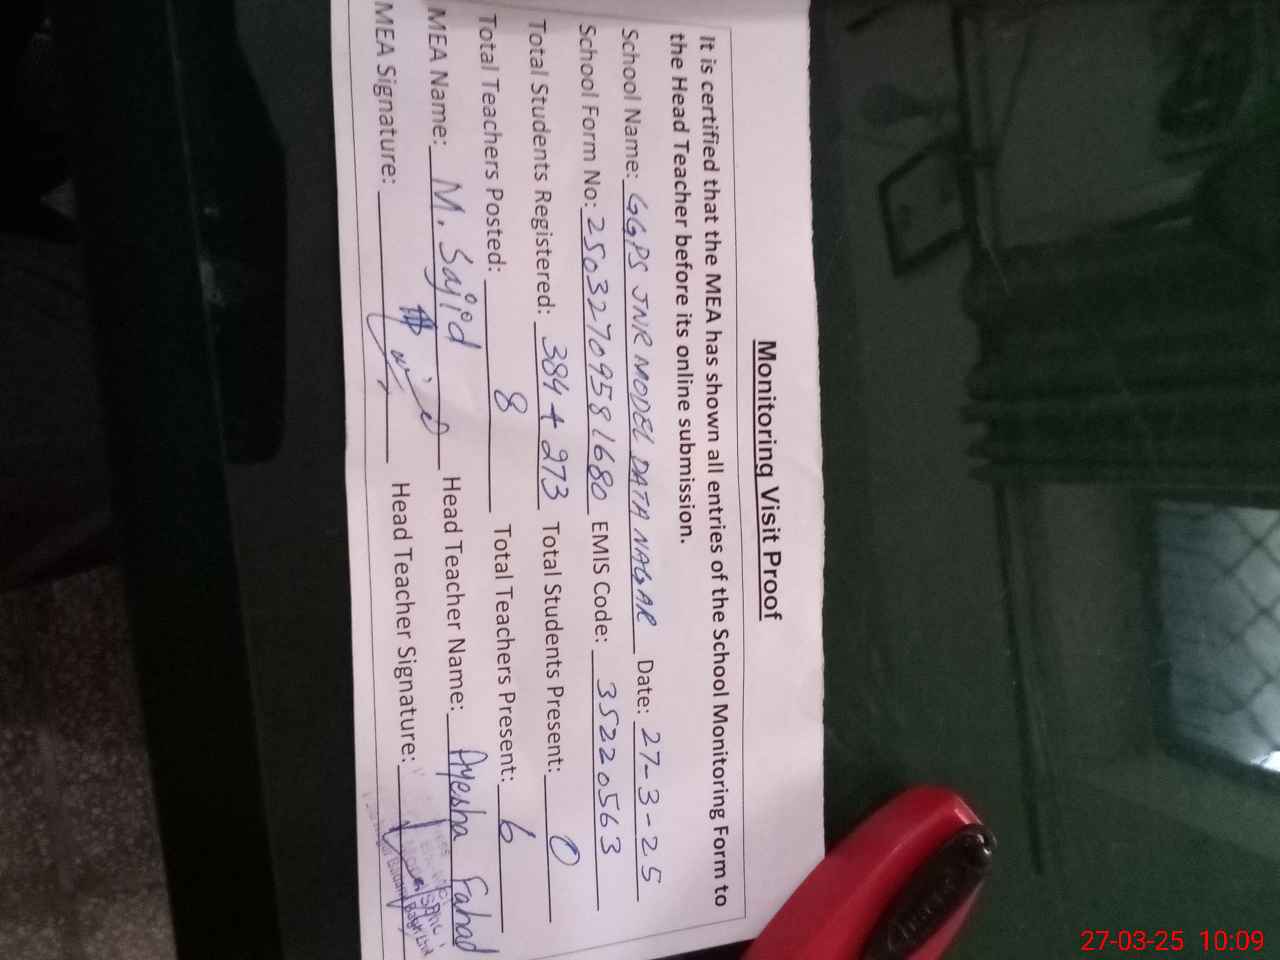 Monitoring Visit Proof
It is certified that the MEA has shown all entries of the School Monitoring Form to
the Head Teacher before its online submission.
School Name: GGPS JNR MODEL DATA NAGAR Date: 27-3-25
School Form No: 25032709581680 EMIS Code: 35220563
Total Students Registered: 384 + 273 Total Students Present: 0
Total Teachers Posted: 8 Total Teachers Present: 6
MEA Name: M. Sajid Head Teacher Name: Ayesha Fahad
MEA Signature: Head Teacher Signature:
27-03-25 10:09